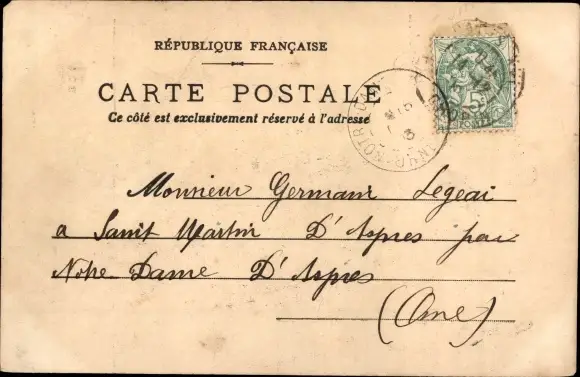 RÉPUBLIQUE FRANÇAISE
CARTE POSTALE
Ce côté est exclusivement réservé à l'adresse
Monsieur Germain Legeai
a Saint Martin D'Aspres par
Notre-Dame D'Aspres
(Orne)